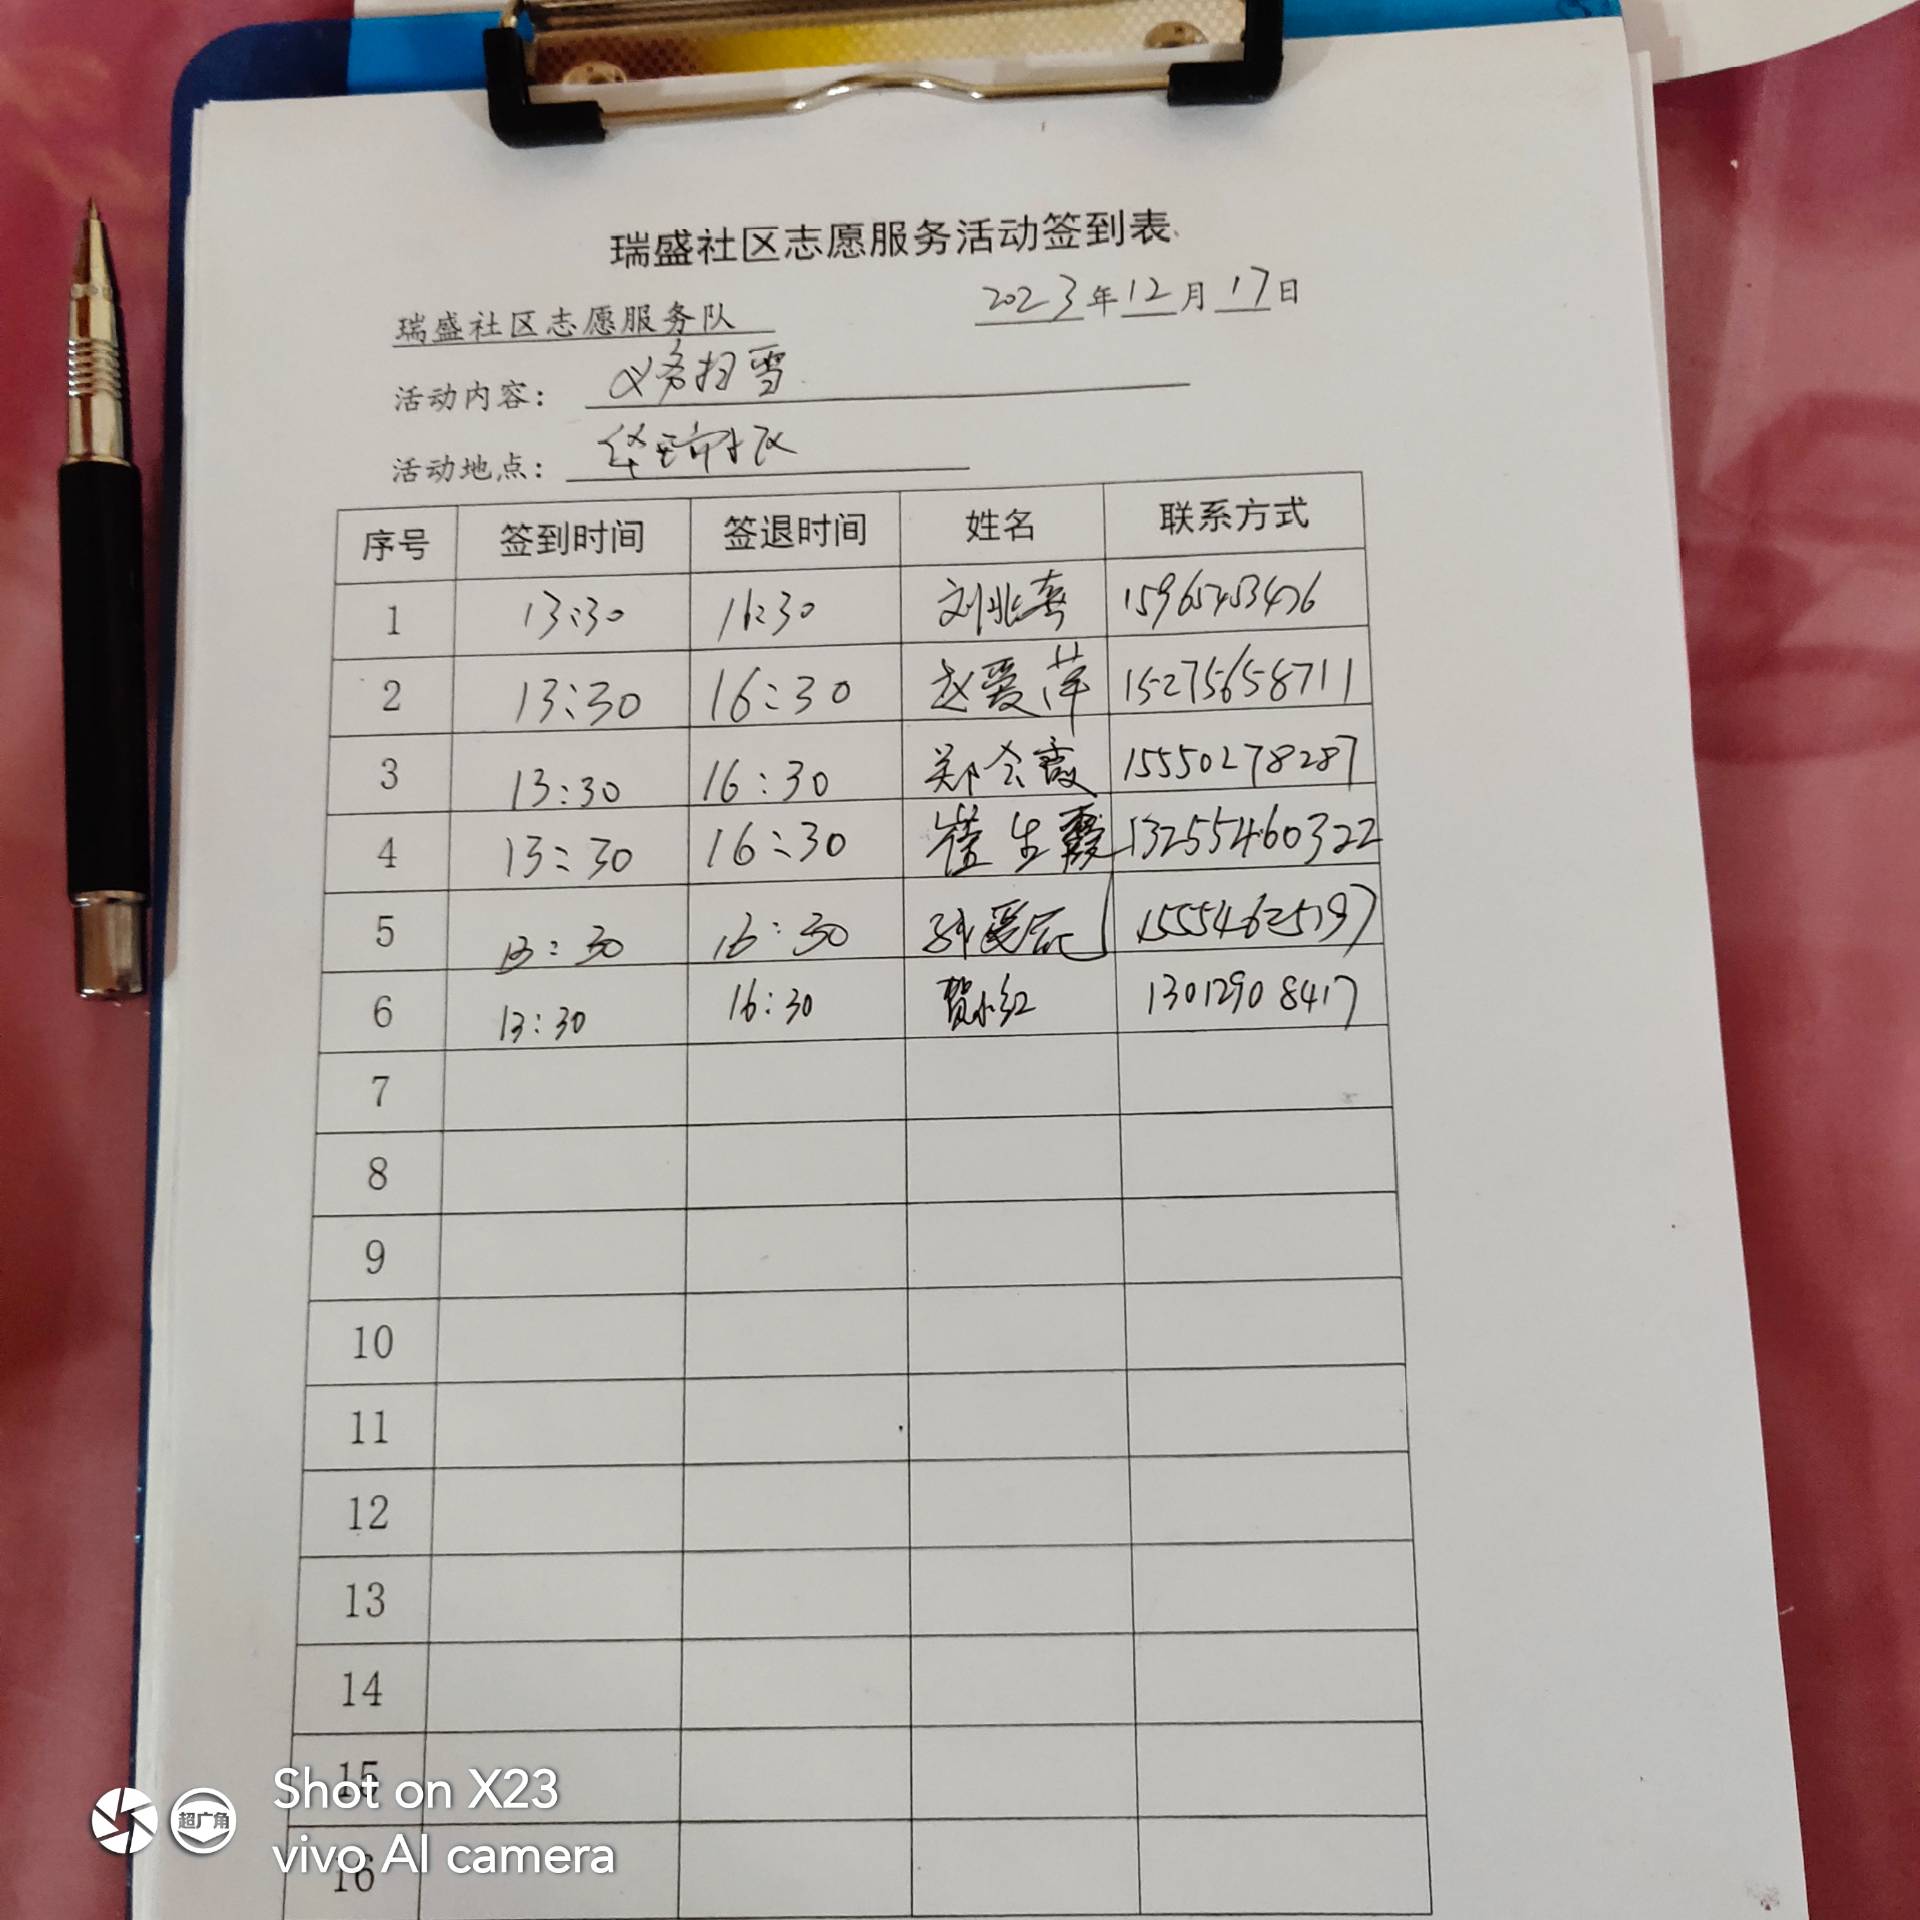 瑞盛社区志愿服务活动签到表
瑞盛社区志愿服务队 2023年12月17日
活动内容： 义务扫雪
活动地点： 华瑞社区
序号 签到时间 签退时间 姓名 联系方式
1 13:30 16:30
2 13:30 16:30 赵爱萍 15275658711
3 13:30 16:30 郑会霞 15550278287
4 13:30 16:30 崔生霞 13255460322
5 13:30 16:30 15554625197
6 13:30 16:30 贺小红 13012908417
7
8
9
10
11
12
13
14
15
16
超广角
Shot on X23
vivo AI camera